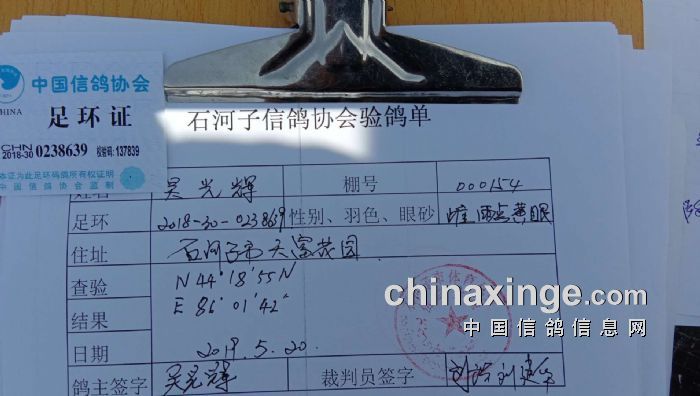 中国信鸽协会
CHINA
足环证
CHN
2018-30 0238639 校验码: 137839
本证为此足环码鸽所有权证明
中国信鸽协会监制
石河子信鸽协会验鸽单
姓名 吴光辉 棚号 000154
足环 2018-30-0238639 性别、羽色、眼砂 雄 雨点 黄眼
住址 石河子市天富花园
查验 N 44°18'55"N
结果 E 86°01'42"
日期 2019.5.20.
鸽主签字 吴光辉 裁判员签字
chinaxinge.com
中国信鸽信息网